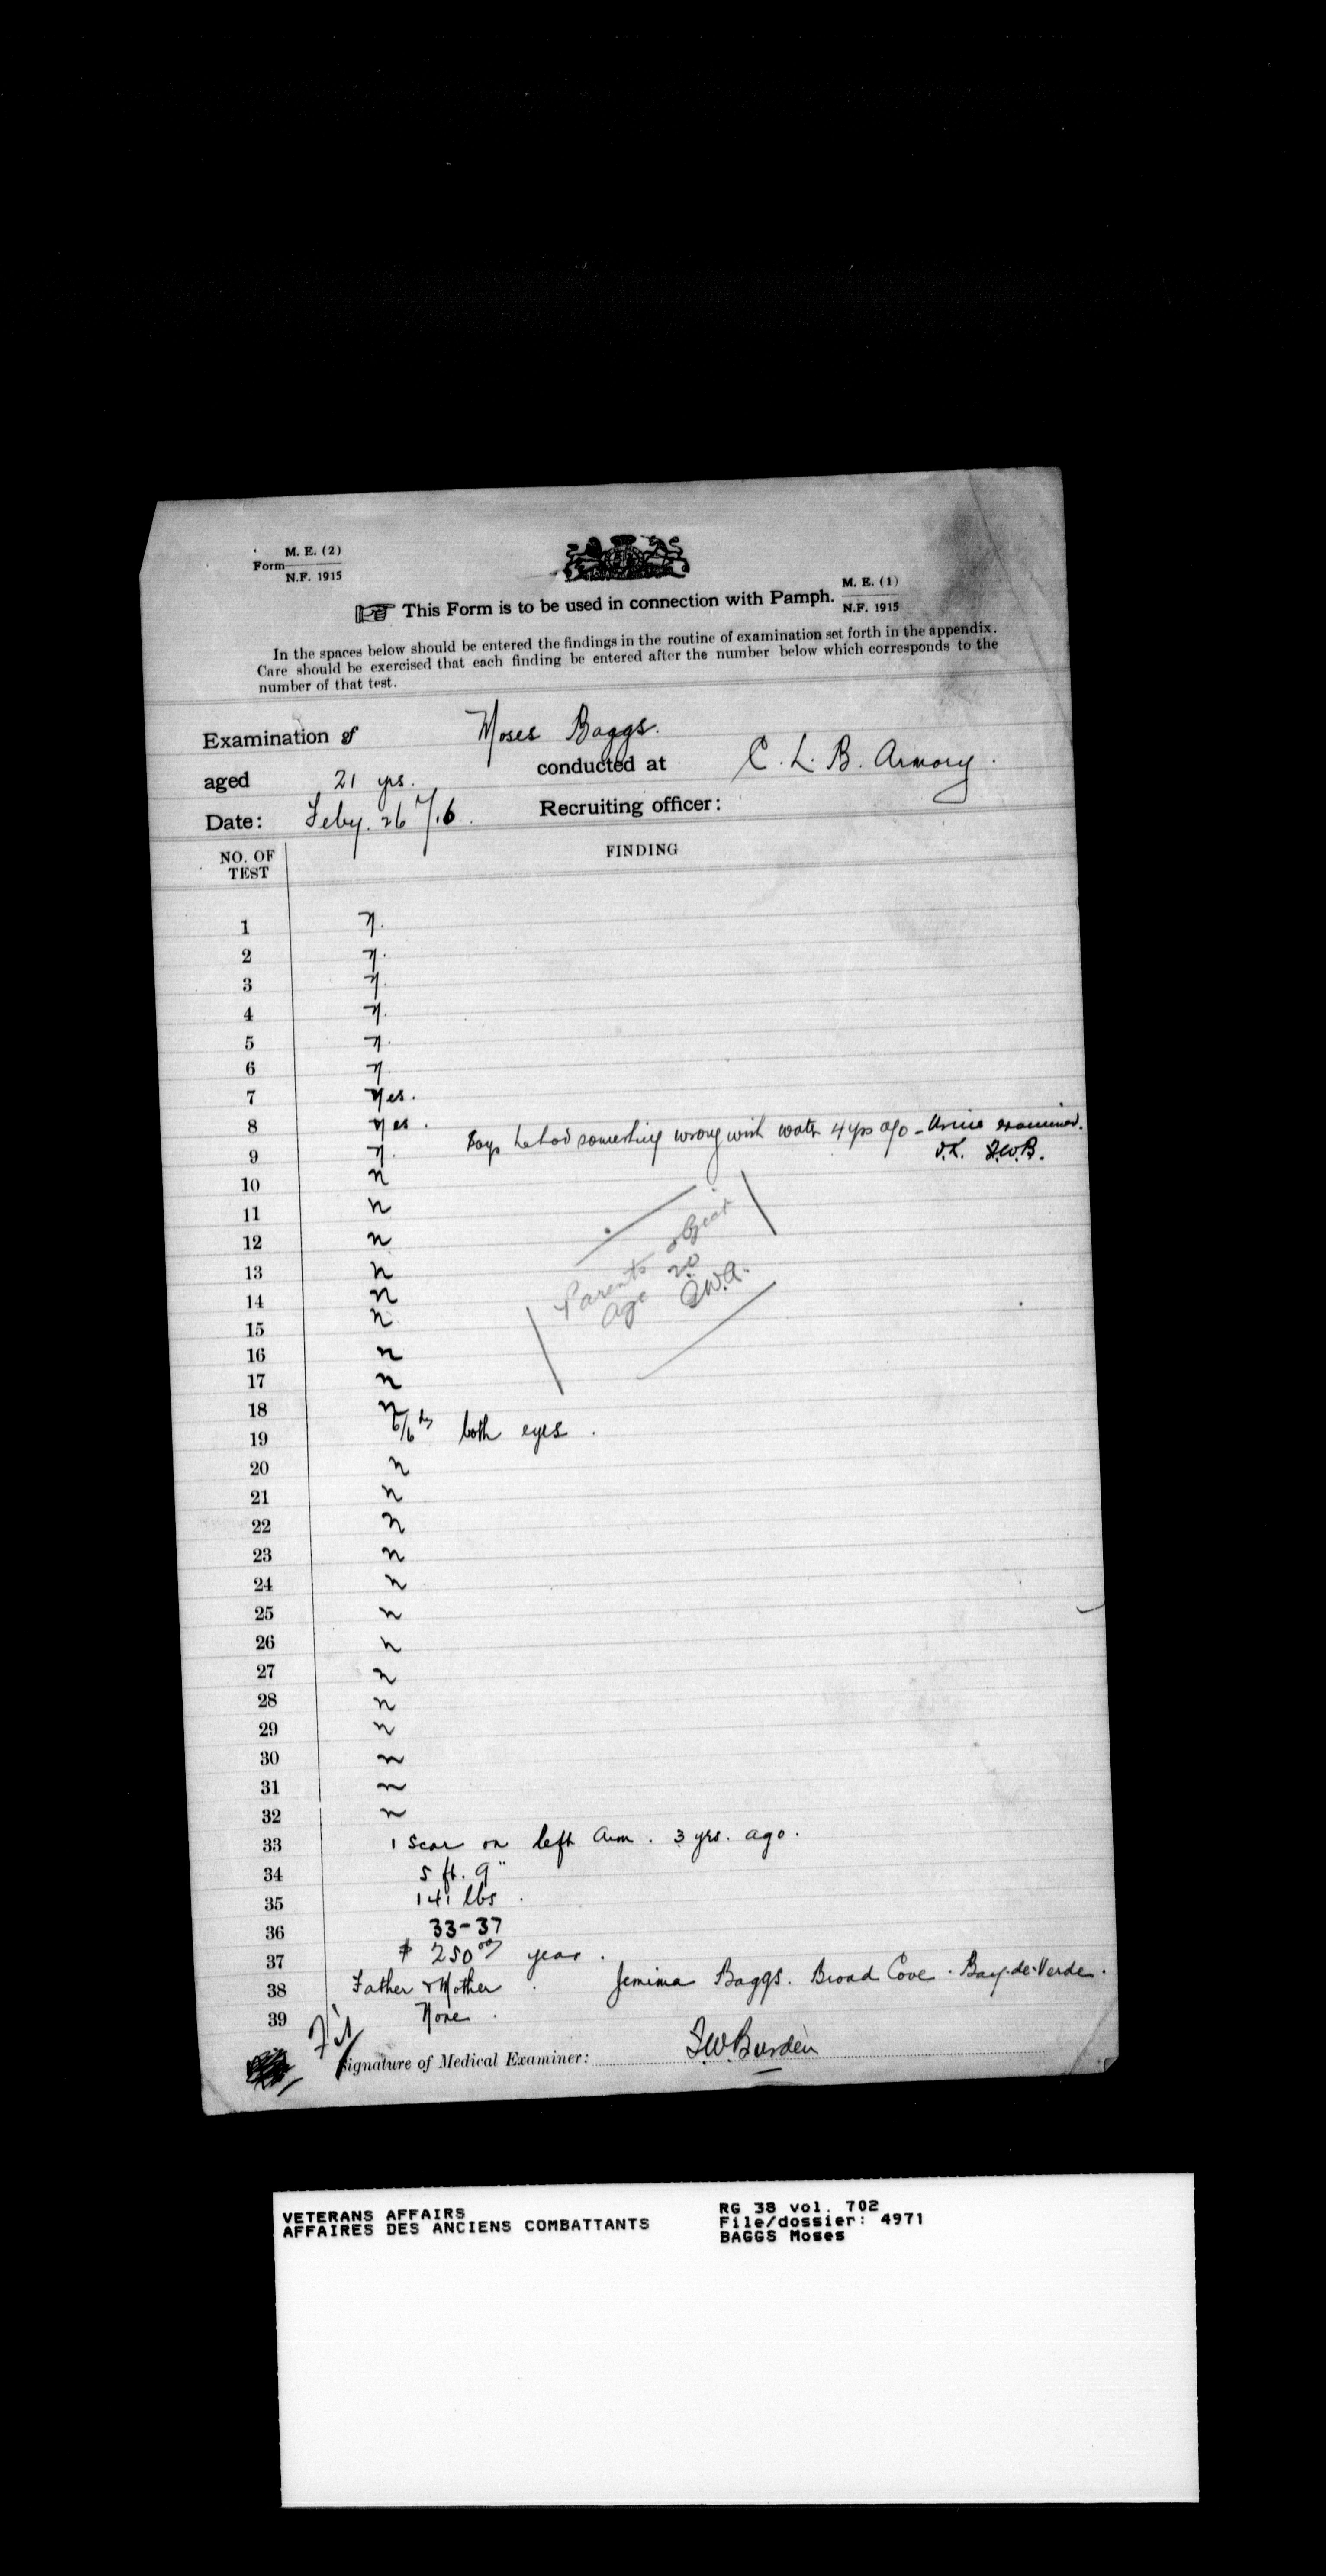 M. E. (2)
Form
N.F. 1915
This Form is to be used in connection with Pamph. M. E. (1)
N.F. 1915
In the spaces below should be entered the findings in the routine of examination set forth in the appendix.
Care should be exercised that each finding be entered after the number below which corresponds to the
number of that test.
Examination of Moses Baggs.
aged 21 yrs. conducted at C. L. B. Armory.
Date: Feby. 26 /16. Recruiting officer:
NO. OF TEST FINDING
1 n.
2 n.
3 n.
4 n.
5 n.
6 n.
7 yes.
8 yes.
9 n. Says he had something wrong with water 4 yrs ago - Urine examined.
O.K. F.W.B.
10 n
11 n
12 n
13 n
14 n
15 n
16 n
17 n
18 n
Parents object
age 20
19 6/6 both eyes.
20 n
21 n
22 n
23 n
24 n
25 n
26 n
27 n
28 n
29 n
30 n
31 n
32 n
33 1 Scar on left Arm. 3 yrs. ago.
34 5 ft. 9"
35 141 lbs.
36 33-37
37 $ 250 00 year.
38 Father & Mother. Jemima Baggs. Broad Cove. Bay-de-Verde.
39 None.
Fit
Signature of Medical Examiner: F.W. Burden
VETERANS AFFAIRS
AFFAIRES DES ANCIENS COMBATTANTS
RG 38 vol. 702
File/dossier: 4971
BAGGS Moses